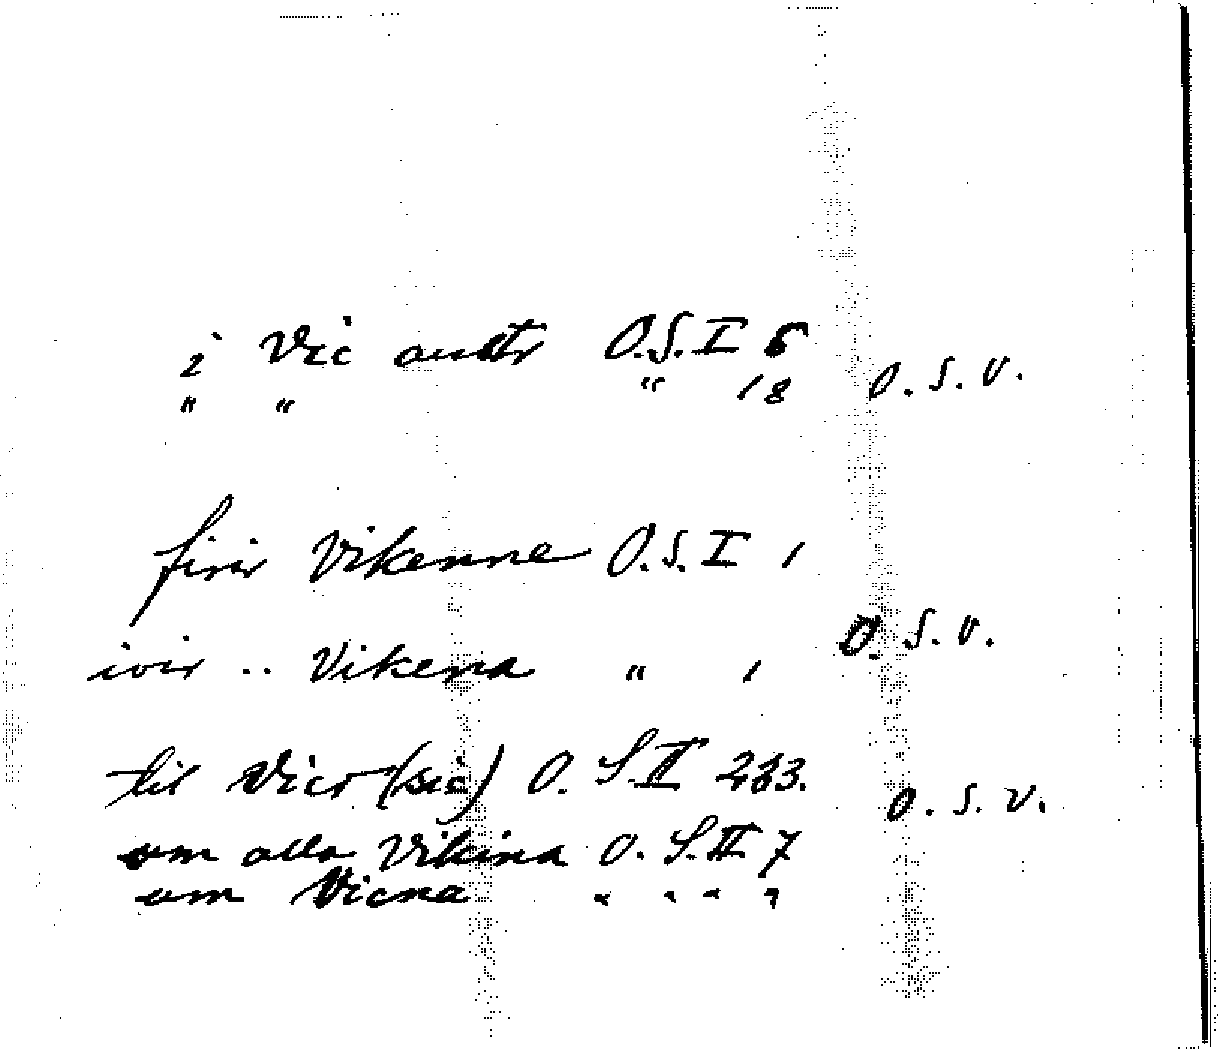 i Vic austr O.S.I 6
" " " 18 O.S.V.
firir Vikenne O.S.I 1
ivir .. Vikena " 1 O.S.V.
til Vicr (sic) O.S.II 233. O.S.V.
um alla Vikina O.S.II 7
um Vicna " " " 9